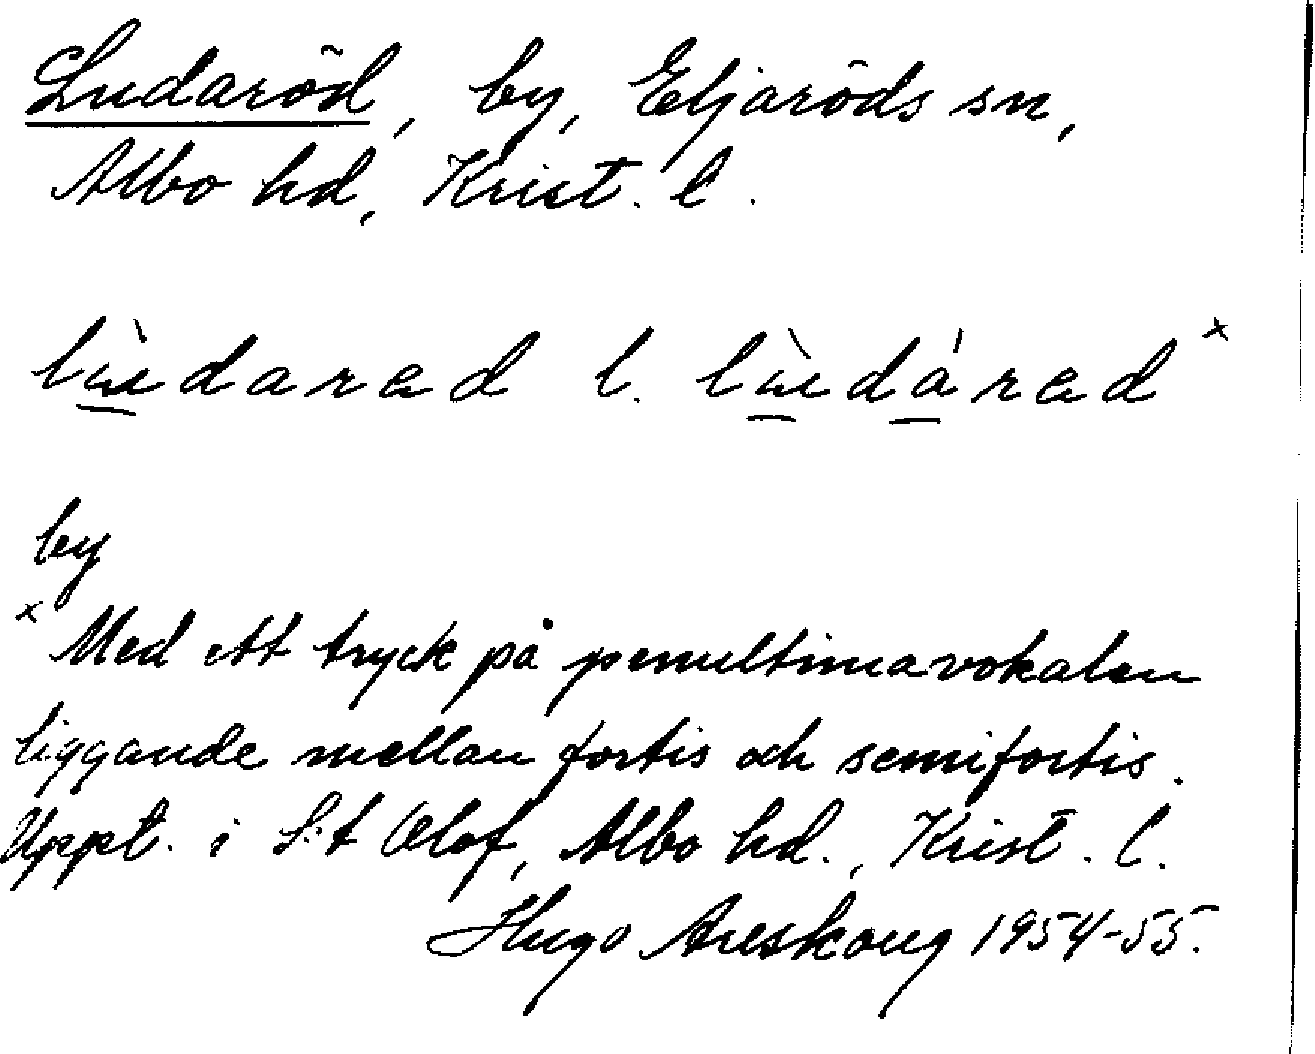 Ludaröd, by, Eljaröds sn,
Albo hd, Krist. l.
lùdarad l. lùdárad x
by
x Med ett tryck på penultimavokalen
liggande mellan fortis och semifortis.
Uppt. i S:t Olof, Albo hd., Krist. l.
Hugo Areskoug 1954-55.